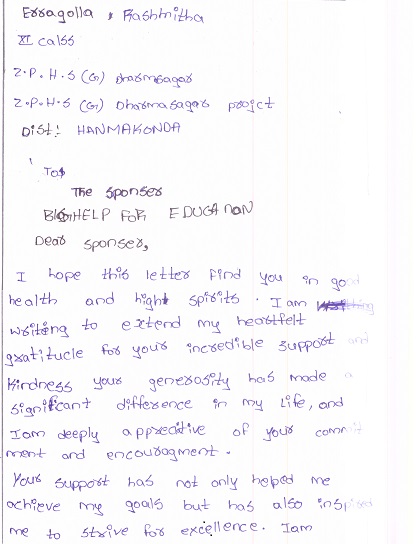 Erragolla Rashmitha
XI calss
Z.P.H.S (G) Dharmasagar
Z.P.H.S (G) Dharmasagar project
Dist! HANMAKONDA
To,
The sponser
HELP FOR EDUCATION
Dear sponser,
I hope this letter find you in good
health and hight spirits. I am
writing to extend my heartfelt
gratitucle for your incredible support and
kindness your generosity has made a
significant difference in my life, and
I am deeply appreciitive of your commit
ment and encouragment.
Your support has not only helped me
achieve my goals but has also inspired
me to strive for excellence. I am